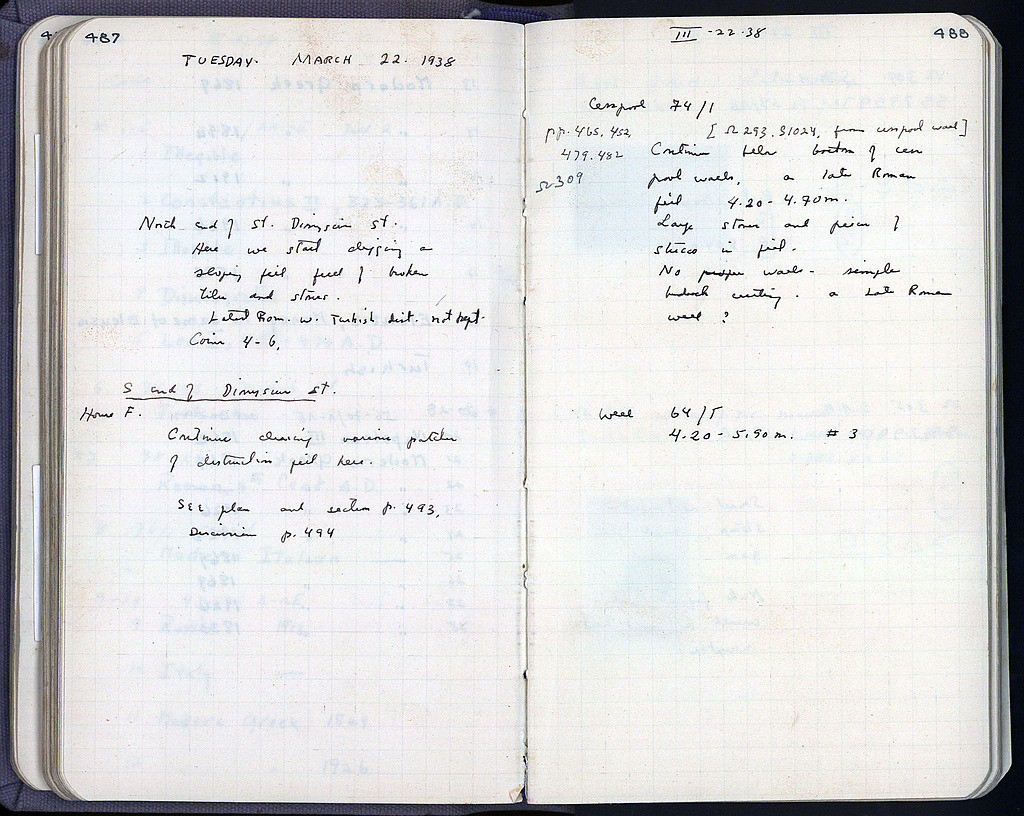 487
TUESDAY. MARCH 22. 1938
North end of St. Dionysius st.
Here we start digging a
sloping fill full of broken
tiles and stones.
Latest Rom. w. Turkish dist. not kept.
Coins 4-6.
S end of Dionysius st.
House F.
Continue clearing various patches
of destruction fill here.
See plan and section p. 493,
Discussion p. 494
III-22-38
488
Cesspool 74/Ι
pp. 465, 452, [Ω 293, 31024, from cesspool wall]
479, 482 Continue below bottom of cess
Ω 309 pool walls, a late Roman
fill 4.20-4.70m.
Large stones and pieces of
stucco in fill.
No proper walls - simple
bedrock cutting. a Late Roman
well?
Well 64/Γ
4.20-5.90m. # 3